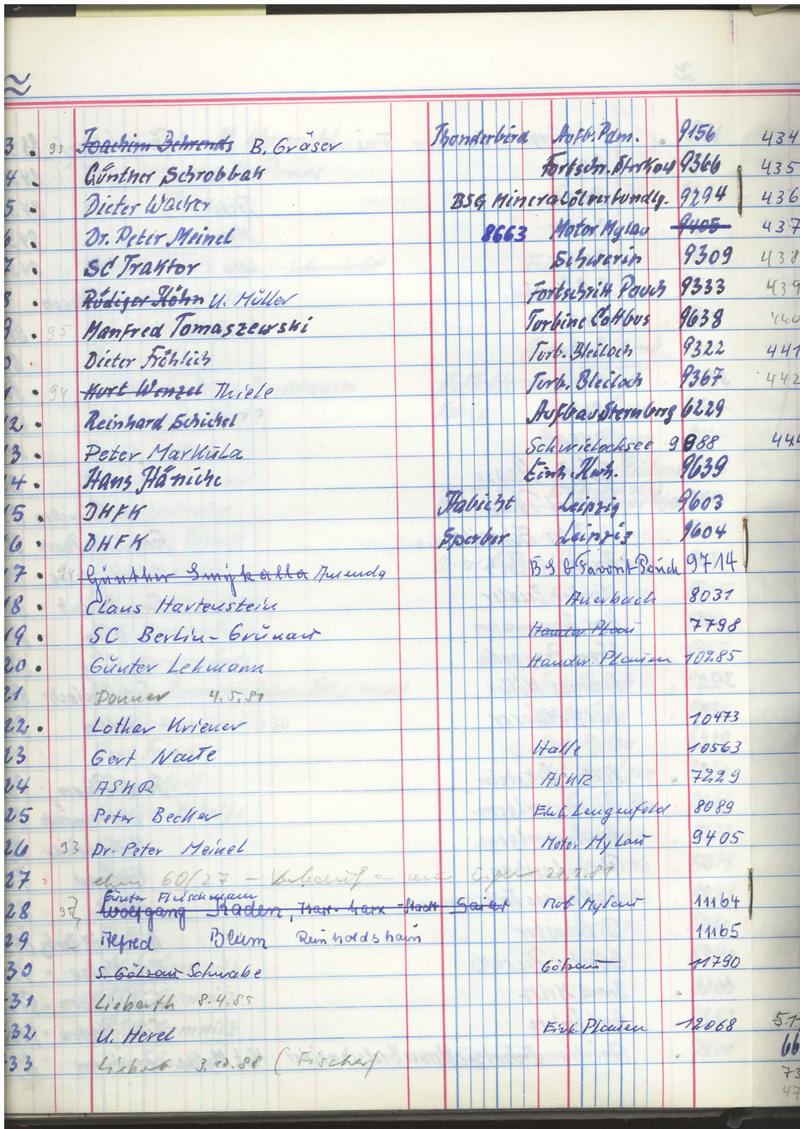 3 . 93 Joachim Behrends B. Gräser Thonderbird Aufb. Pdm. 9156 434
4 . Günther Schrobbak Fortschr. Strkow 9366 435
5 . Dieter Wacker BSG Mineralölverbundlg. 9294 436
6 . Dr. Peter Meinel 8663 Motor Mylau 9405 437
7 . SC Traktor Schwerin 9309 438
8 . Rüdiger Höhn U. Müller Fortschritt Pouch 9333 439
9 . 95 Manfred Tomaszewski Turbine Cottbus 9638
0 . Dieter Fröhlich Turb. Bleiloch 9322 441
1 . 94 Kurt Wenzel Thiele Turb. Bleiloch 9367 442
12 . Reinhard Schichel Aufbau Sternberg 6229
13 . Peter Markula Schwielochsee 9888 444
14 . Hans Hänicke Einh. 9639
15 . DHFK Habicht Leipzig 9603
16 . DHFK Sperber Leipzig 9604
17 . 94 Günther Smykalla Amenda BSG Favorit Pouch 9714
18 . Claus Hartenstein Auerbach 8031
19 . SC Berlin-Grünau Handw. Plau 7798
20 . Günter Lehmann Handw. Plauen 10285
21 Donner 4.5.81
22 . Lothar Kriener 10473
23 Gert Naute Halle 10563
24 ASKR ASKR 7229
25 Peter Becker Einh. Lengenfeld 8089
26 93 Dr. Peter Meinel Motor Mylau 9405
27 60/27 - Verkauf
Günter Fleischmann
28 Wolfgang Raden, Karl-Marx-Stadt Mot. Mylau 11164
29 Alfred Blum Reinholdshain 11165
30 S. Gölzau Schwabe Gölzau 11790
31 Lieberth 8.4.85
32 U. Herel Einh. Plauen 12068
33 3.10.88 (Fischer)
66
73
47